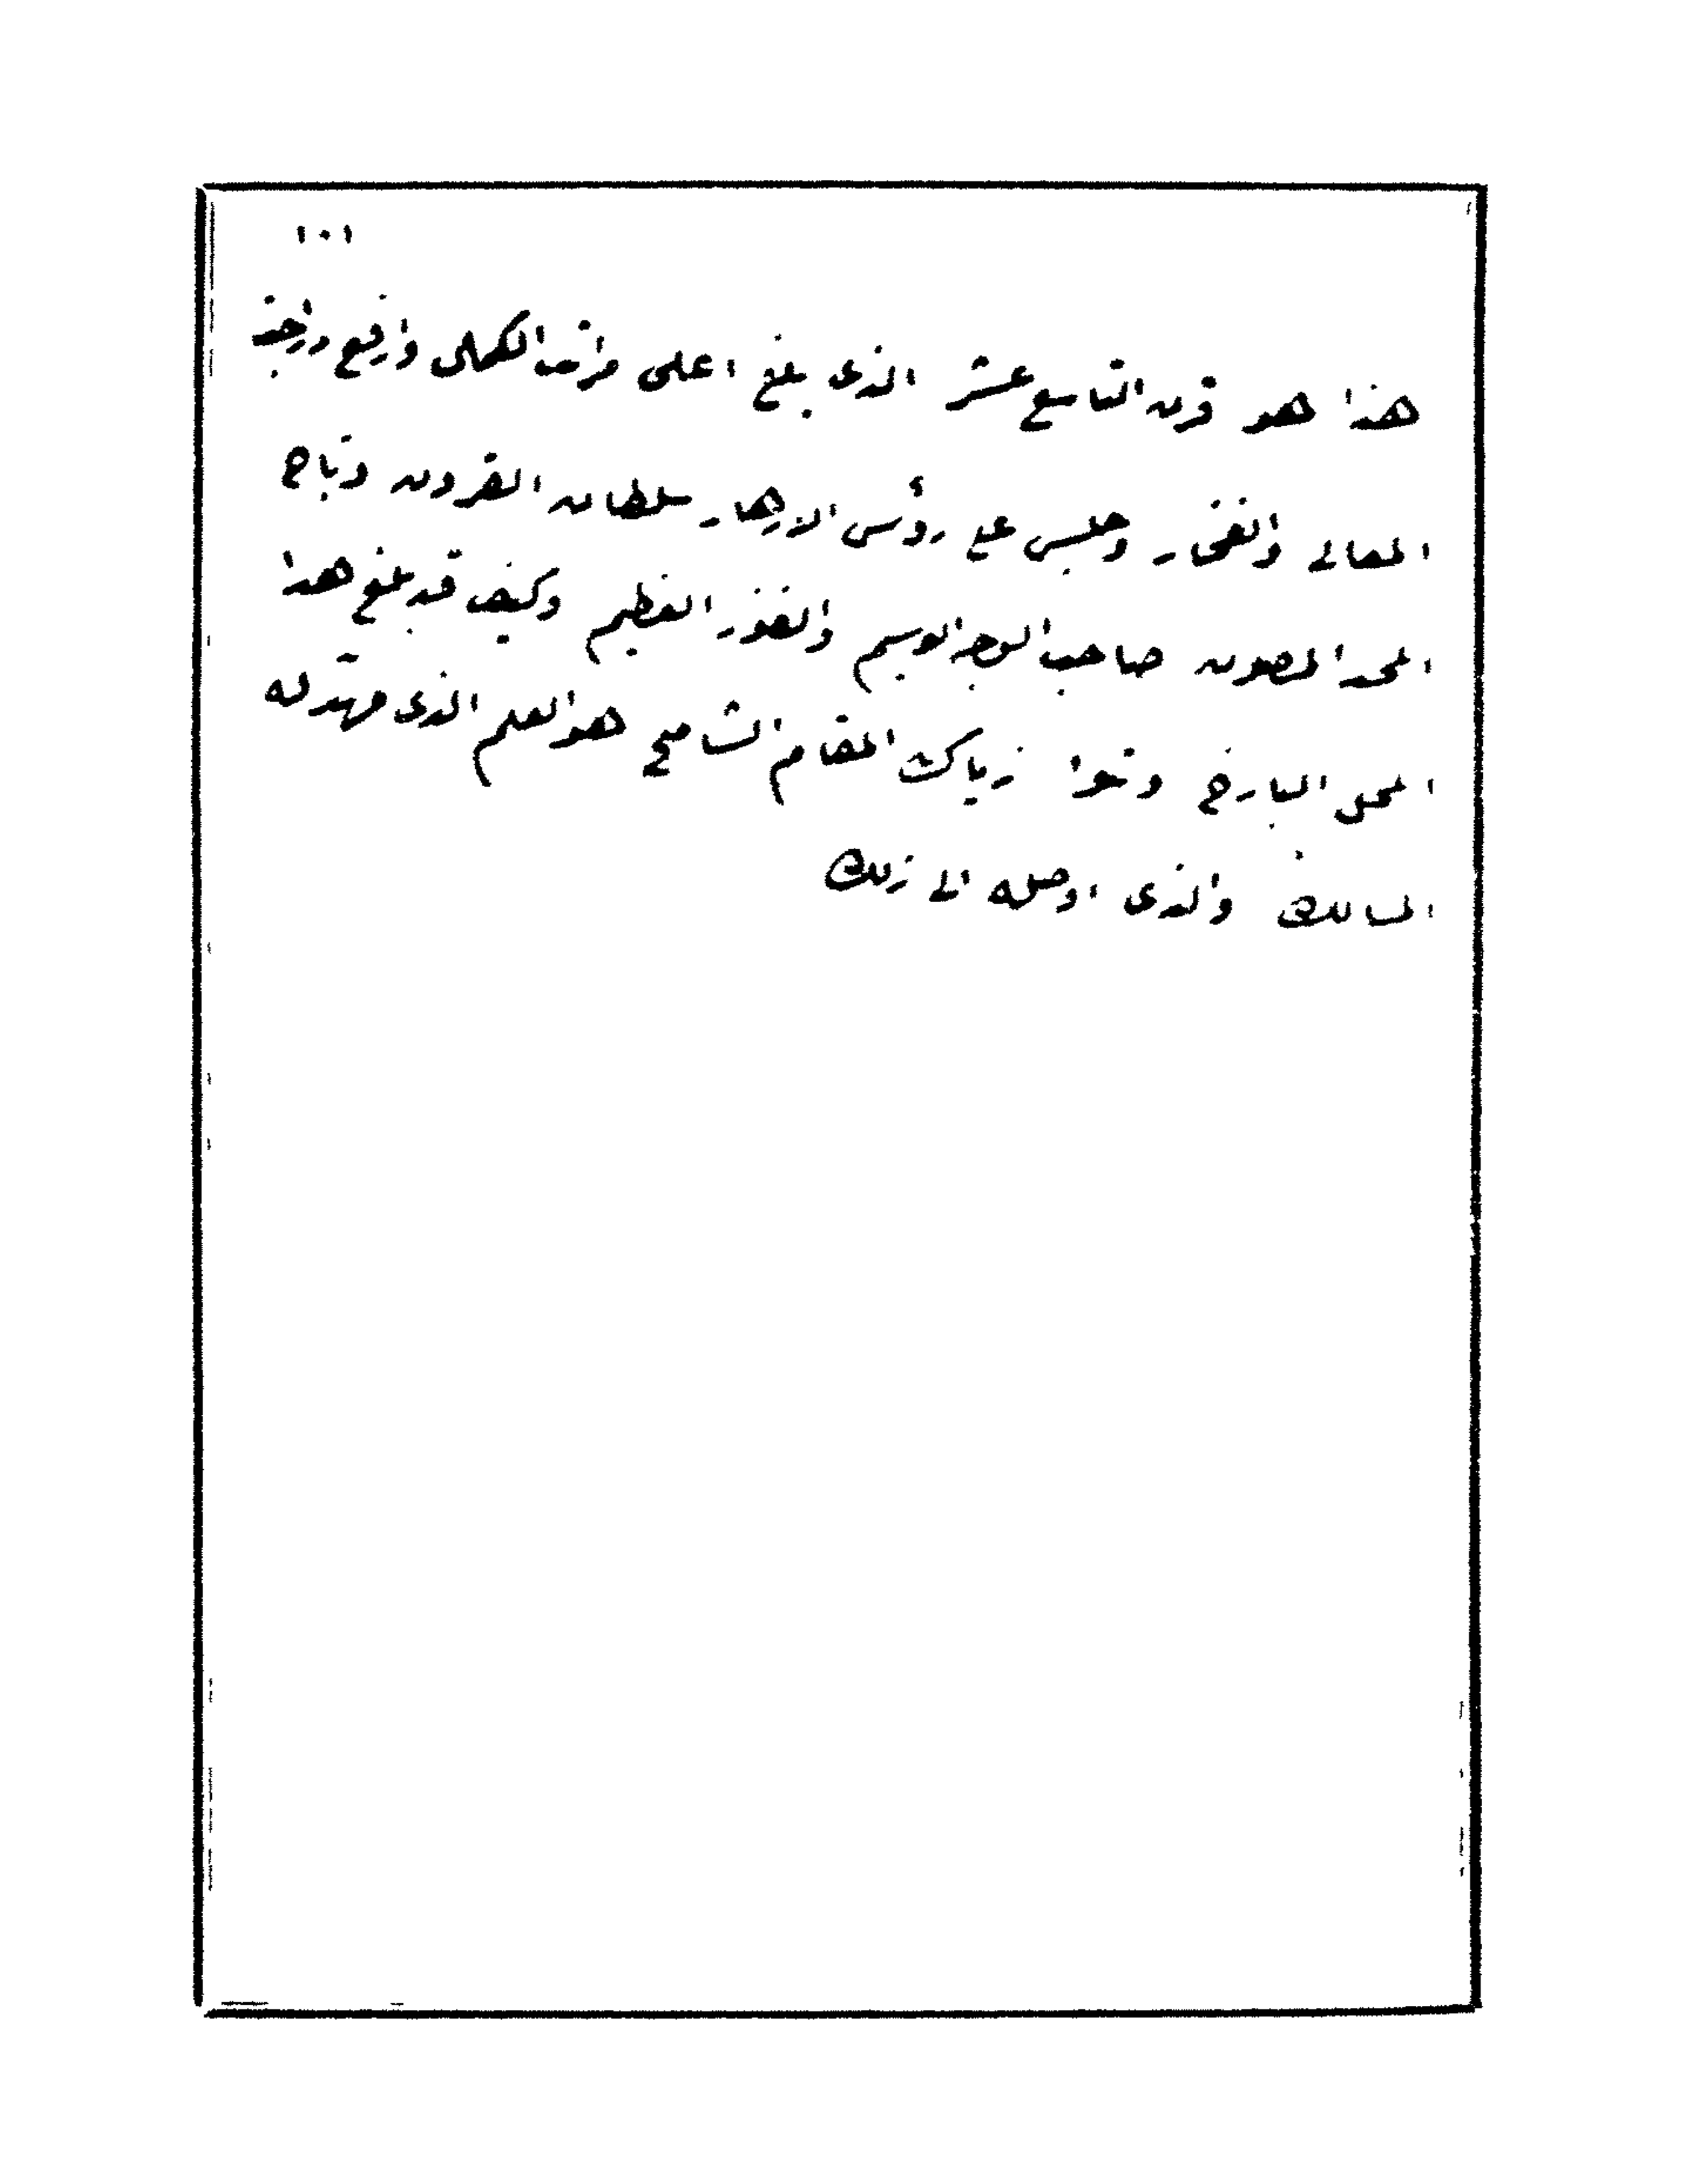 ١٠١
هذا هو قرن التاسع عشر الذى بلغ اعلى مراتب الكمال وارفع درجة
المعالى والفخار وجلس على رؤس الادهار سلطان القرون وتاج
المجد المصون صاحب الوجه الوسيم والفوز العظيم وكيف قد بلغ هذا
المحل البازخ وتبوا زياك المقام الشامخ هو العلم الذى مهّد له
المسالك والذى اوصله الى ذلك